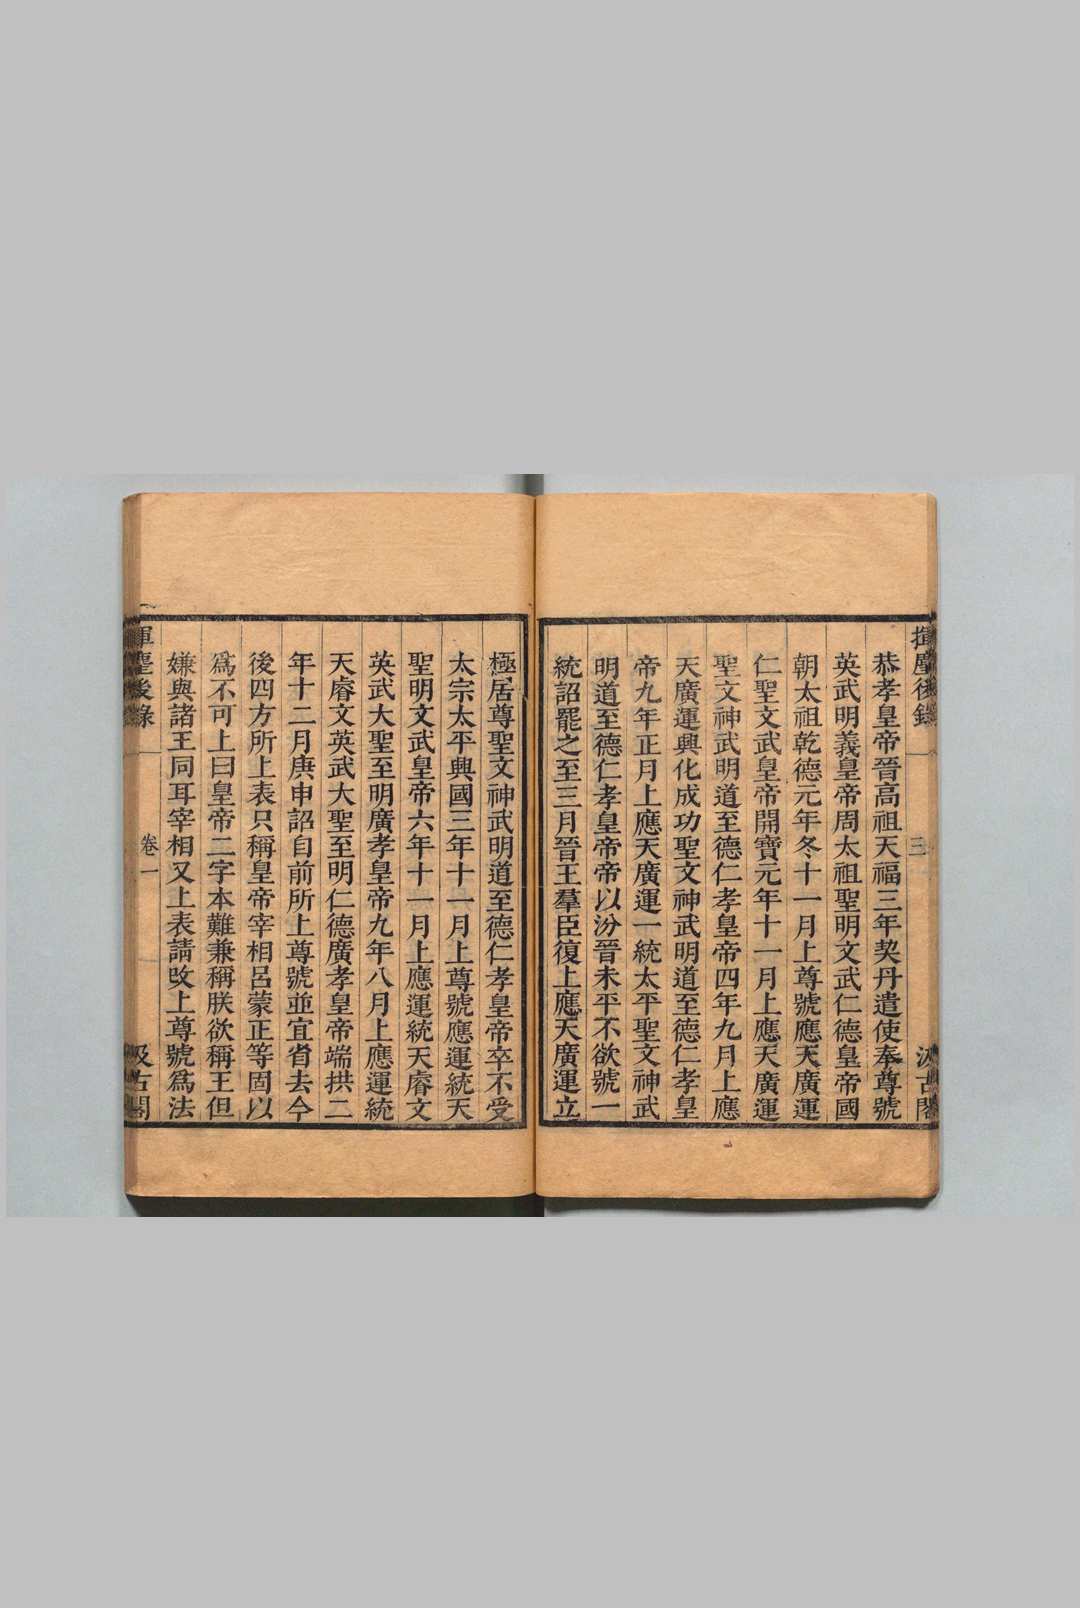 揮麈後錄
三
汲古閣
恭孝皇帝晉高祖天福三年契丹遣使奉尊號
英武明義皇帝周太祖聖明文武仁德皇帝國
朝太祖乾德元年冬十一月上尊號應天廣運
仁聖文武皇帝開寶元年十一月上應天廣運
聖文神武明道至德仁孝皇帝四年九月上應
天廣運興化成功聖文神武明道至德仁孝皇
帝九年正月上應天廣運一統太平聖文神武
明道至德仁孝皇帝帝以汾晉未平不欲號一
統詔罷之至三月晉王羣臣復上應天廣運立
極居尊聖文神武明道至德仁孝皇帝卒不受
太宗太平興國三年十一月上尊號應運統天
聖明文武皇帝六年十一月上應運統天睿文
英武大聖至明廣孝皇帝九年八月上應運統
天睿文英武大聖至明仁德廣孝皇帝端拱二
年十二月庚申詔自前所上尊號並宜省去今
後四方所上表只稱皇帝宰相呂蒙正等固以
爲不可上曰皇帝二字本難兼稱朕欲稱王但
嫌與諸王同耳宰相又上表請攺上尊號爲法
揮麈後錄
卷一
汲古閣